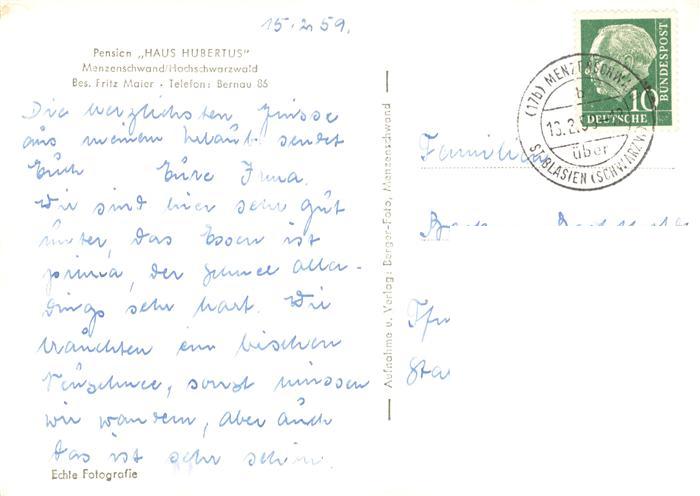 15.2.59.
Pension „HAUS HUBERTUS"
Menzenschwand/Hochschwarzwald
Bes. Fritz Maier · Telefon: Bernau 86
Die herzlichsten Grüsse
aus meinem Urlaub sendet
Euch Eure Irma.
Wir sind hier sehr gut
unter, das Essen ist
prima, der Schnee aller-
dings sehr hart. Wir
bräuchten ein bischen
Neuschnee, sonst müssen
wir wandern, aber auch
das ist sehr schön.
Echte Fotografie
Aufnahme u. Verlag: Berger-Foto, Menzenschwand
10
DEUTSCHE
BUNDESPOST
(17b) MENZENSCHWAND
b
über
ST. BLASIEN (SCHWARZW)
Familie